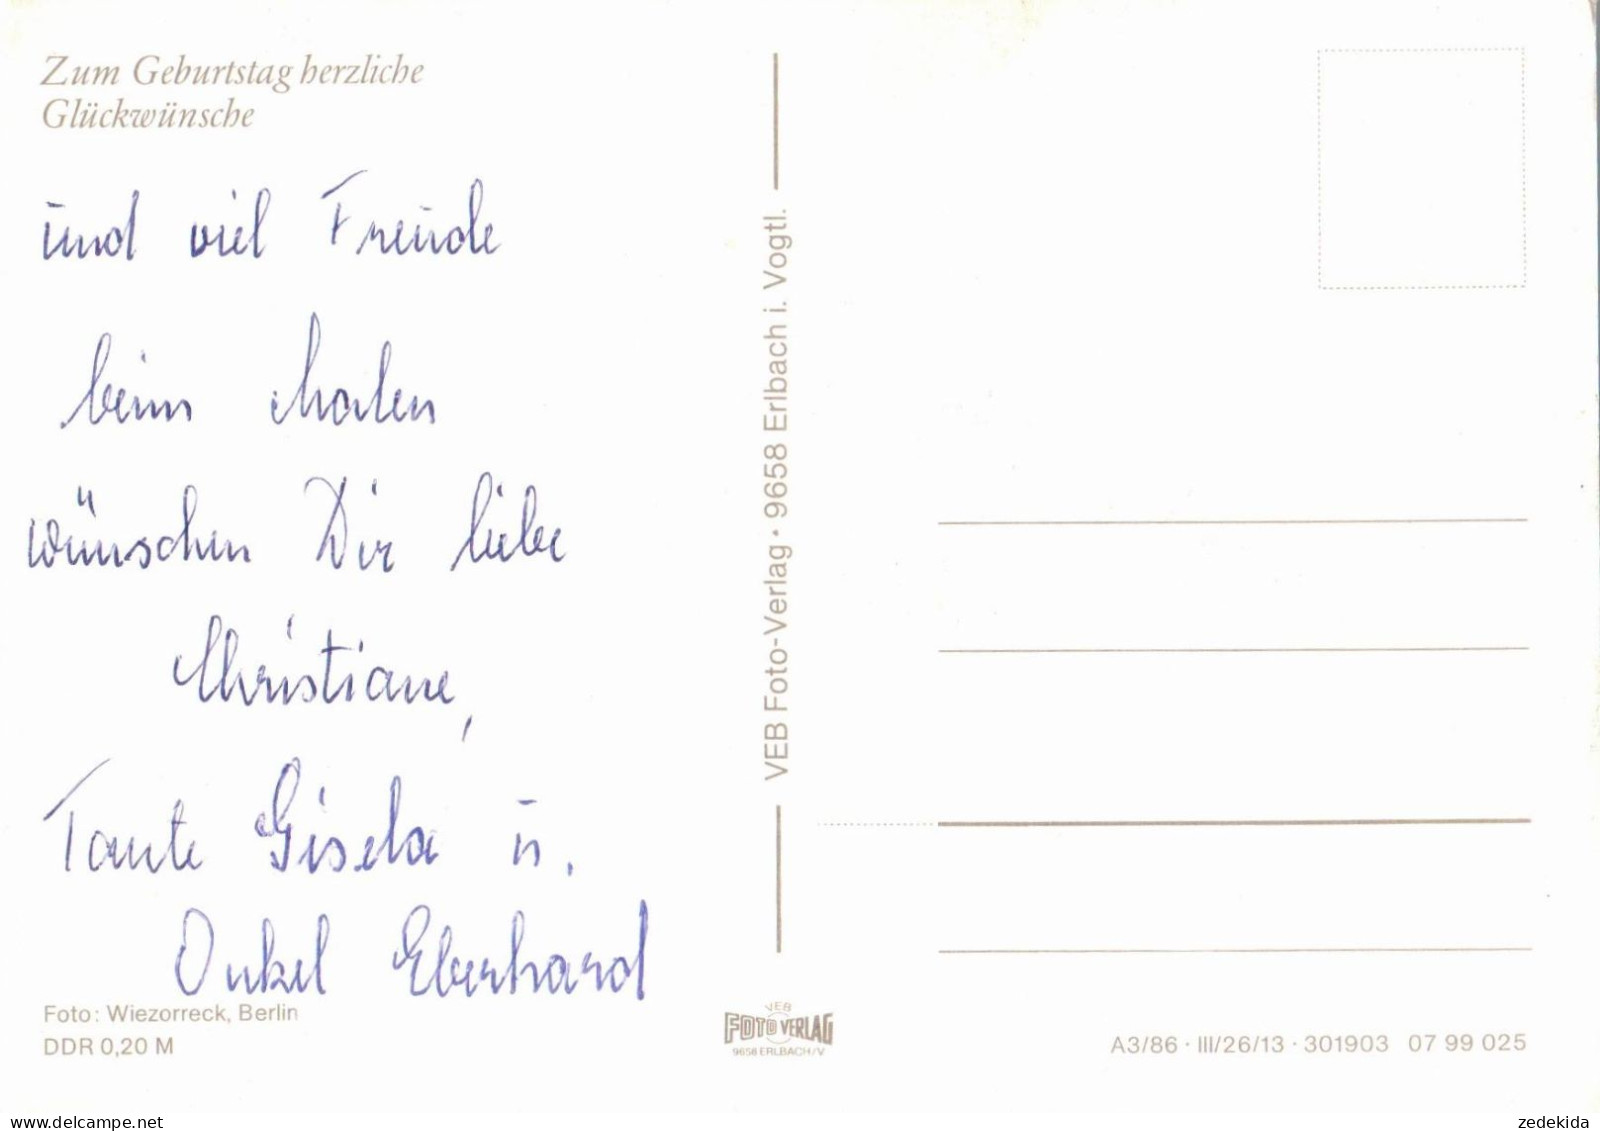 Zum Geburtstag herzliche
Glückwünsche
und viel Freude
beim Malen
wünschen Dir liebe
Christiane,
Tante Gisela u.
Onkel Eberhard
Foto: Wiezorreck, Berlin
DDR 0,20 M
VEB Foto-Verlag · 9658 Erlbach i. Vogtl.
VEB
FOTO VERLAG
9658 ERLBACH/V
A3/86 · III/26/13 · 301903 07 99 025
https://www.delcampe.net
zedekida